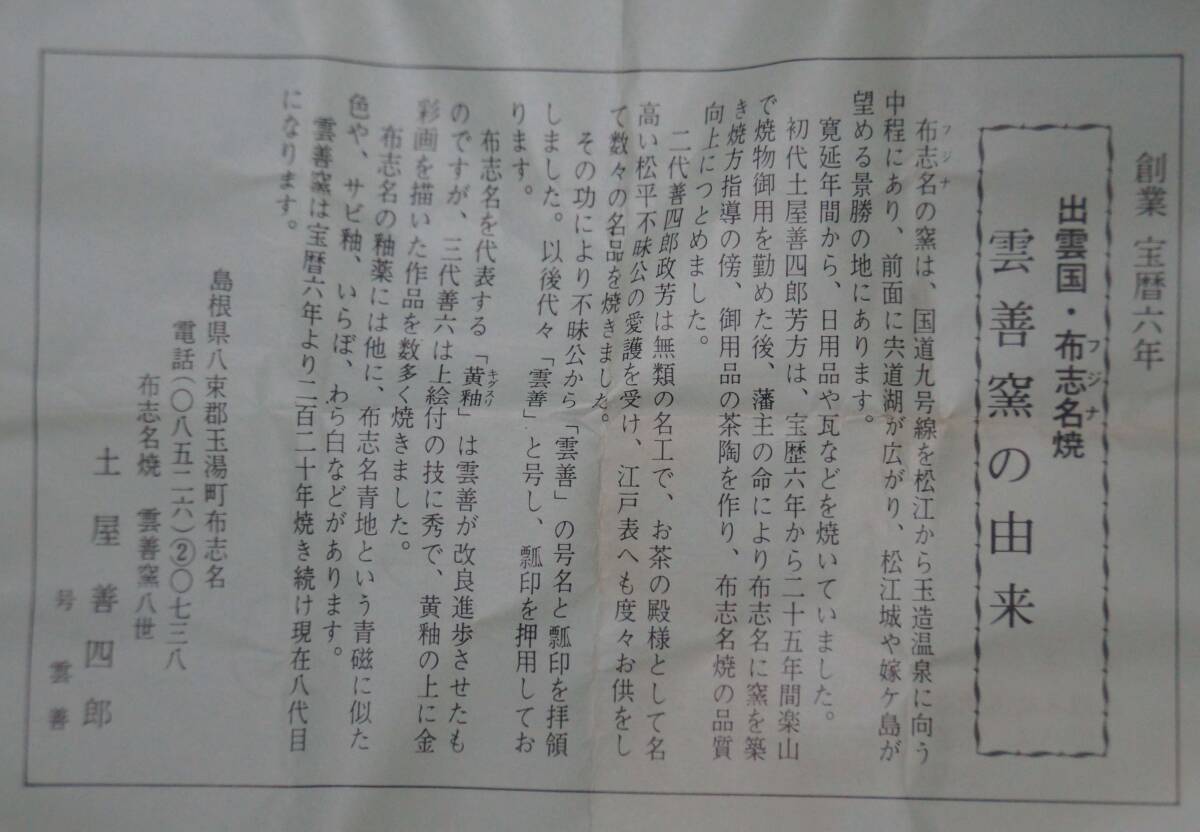 創業 宝暦六年
出雲国・布志名焼
フジナ
雲善窯の由来
布志名の窯は、国道九号線を松江から玉造温泉に向う
フジナ
中程にあり、前面に宍道湖が広がり、松江城や嫁ケ島が
望める景勝の地にあります。
寛延年間から、日用品や瓦などを焼いていました。
初代土屋善四郎芳方は、宝歴六年から二十五年間楽山
で焼物御用を勤めた後、藩主の命により布志名に窯を築
き焼方指導の傍、御用品の茶陶を作り、布志名焼の品質
向上につとめました。
二代善四郎政芳は無類の名工で、お茶の殿様として名
高い松平不昧公の愛護を受け、江戸表へも度々お供をし
て数々の名品を焼きました。
その功により不昧公から「雲善」の号名と瓢印を拝領
しました。以後代々「雲善」と号し、瓢印を押用してお
ります。
布志名を代表する「黄釉」は雲善が改良進歩させたも
キグスリ
のですが、三代善六は上絵付の技に秀で、黄釉の上に金
彩画を描いた作品を数多く焼きました。
布志名の釉薬には他に、布志名青地という青磁に似た
色や、サビ釉、いらぼ、わら白などがあります。
雲善窯は宝暦六年より二百二十年焼き続け現在八代目
になります。
島根県八束郡玉湯町布志名
電話(〇八五二六)②〇七三八
布志名焼 雲善窯八世
土屋善四郎
号 雲善